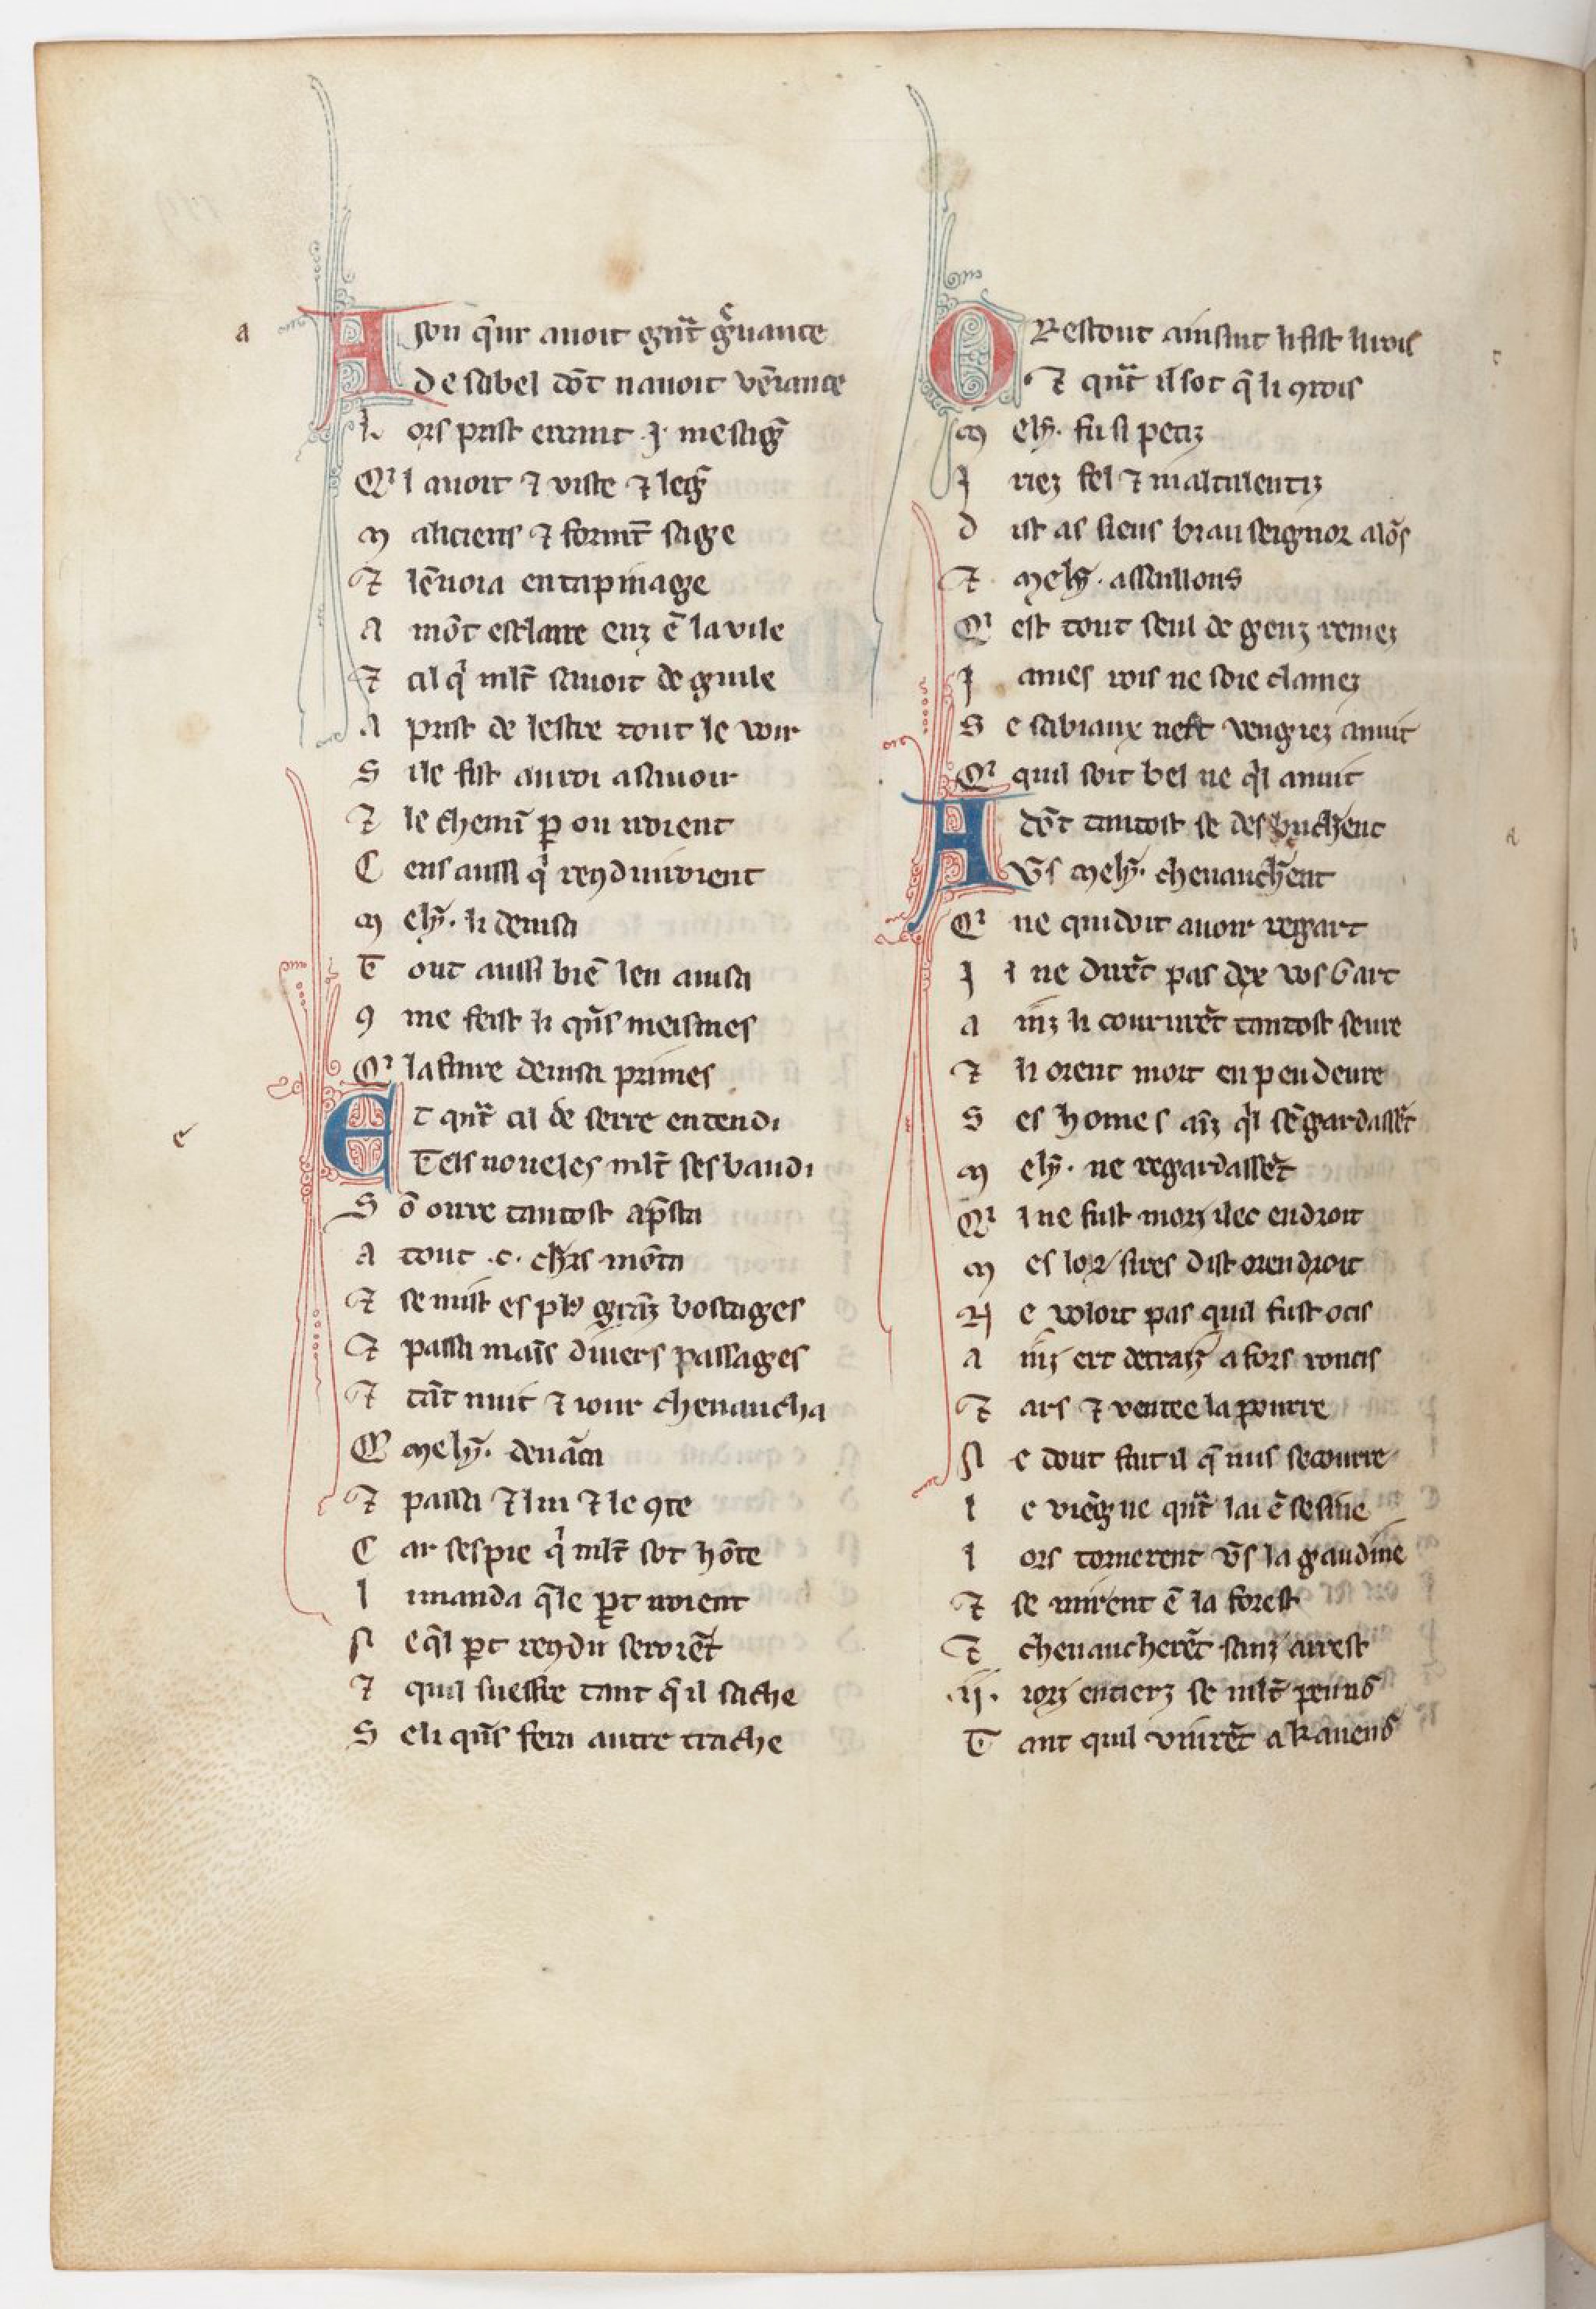 a
A son q̃ur auoit gñt gͣuance
De sabel dõt nauoit vẽiance
L ors prist errant .j. mesagᷓ
Qͥ l auoit ⁊ viste ⁊ legᷓ
M aliciens ⁊ formt̃ sage
⁊ lẽuoia en tapinage
A mõt esclaire enz ẽ la vile
⁊ cil qͥ mlt̃ sauoit de guile
A prist de lestre tout le voir
S ile fist au roi asauoir
⁊ le chemĩ ꝑ ou iroient
C eus aussi qͥ reꝯduiroient
M elỹ. li deuisa
T out aussi biẽ len auisa
ꝯ me feist li qñs meismes
Qͥ lafaire deuisa primes
e
E t qñt cil de serre entendi
Tels noueles mlt̃ ses baudi
S õ oirre tantost ap̃sta
A tout .c. chr̃s mõta
⁊ se mist es plꝰ grãz boscages
⁊ passa maĩs diuers passages
⁊ tãt nuit ⁊ iour cheuaucha
Qͤ melỹ. deuãca
⁊ passa ⁊ lui ⁊ le ꝯte
C ar sespie qͥ mlt̃ sot hõte
L i manda q̃le ꝑt iroient
N e q̃l ꝑt reꝯdu seroiẽt
⁊ quil sueffre tant q̃ il sache
S e li qñs fera autre trache
O R estout ainsint li fist li rois
⁊ qñt il sot q̃ li ꝯrois
M elỹ. fu si petiz
J riez fel ⁊ maltalentiz
D ist as siens biau seignor alõs
⁊ melỹ. assaillons
Qͥ est tout seul de genz remez
J ames rois ne soie clamez
S e sabiaux nest vengiez anuit
Qͥ quil soit bel ne q̃l anuit
A dõt tantost se desbuchẽt
Vs̃ melỹ. cheuauchẽt
Qͥ ne quidoit auoir regart
J l ne dirẽt pas dex vos gart
A inz li coururẽt tantost seure
⁊ li orent mort en peu deure
S es homes aĩz q̃l sẽ gardassẽt
M elỹ. ne regardassẽt
Qͥ l ne fust morz ilec endroit
M es lor sires dist orendroit
N e voloit pas quil fust ocis
A inz ert detraiz a fors roncis
⁊ ars ⁊ ventee la pourre
N e dout fait il q̃ nus secourre
L e viẽgne qñt lai ẽ sesine
L ors tornerent vs̃ la gaudine
⁊ se mirent ẽ la forest
⁊ cheuaucherẽt sanz arrest
.ij. iorz entierz se mlt̃ peu nõ
T ant quil vinrẽt a kauenõ